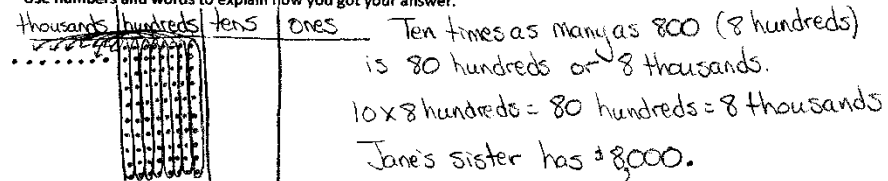 Use numbers and words to explain how you got your answer.
thousands hundreds tens ones
Ten times as many as 800 (8 hundreds)
is 80 hundreds or 8 thousands.
10 x 8 hundreds = 80 hundreds = 8 thousands
Jane's sister has $8,000.